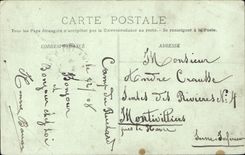 CARTE POSTALE
Tous les Pays étrangers n'acceptent pas la Correspondance au recto. — Se renseigner à la Poste.
CORRESPONDANCE
ADRESSE
Camp du Ruchard
le 22/ 08
Bonjour
Bonjour
Monsieur
Andre
des Rivieres N° 4
Montivilliers
près le Havre
Seine Inférieure